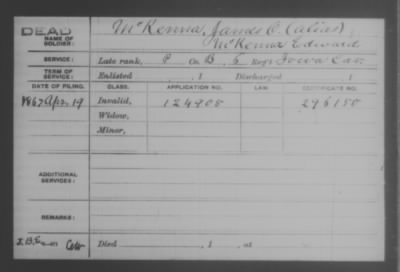 DEAD
NAME OF SOLDIER:
McKenna, James C. (alias),
McKenna Edward
SERVICE:
Late rank, P Co. B, 6 Reg't Iowa Cav
TERM OF SERVICE:
Enlisted , 1 Discharged , 1
DATE OF FILING. CLASS. APPLICATION NO. LAW. CERTIFICATE NO.
1867 Apr. 19 Invalid, 124908 296150
Widow,
Minor,
ADDITIONAL SERVICES:
REMARKS:
Died , 1 , at